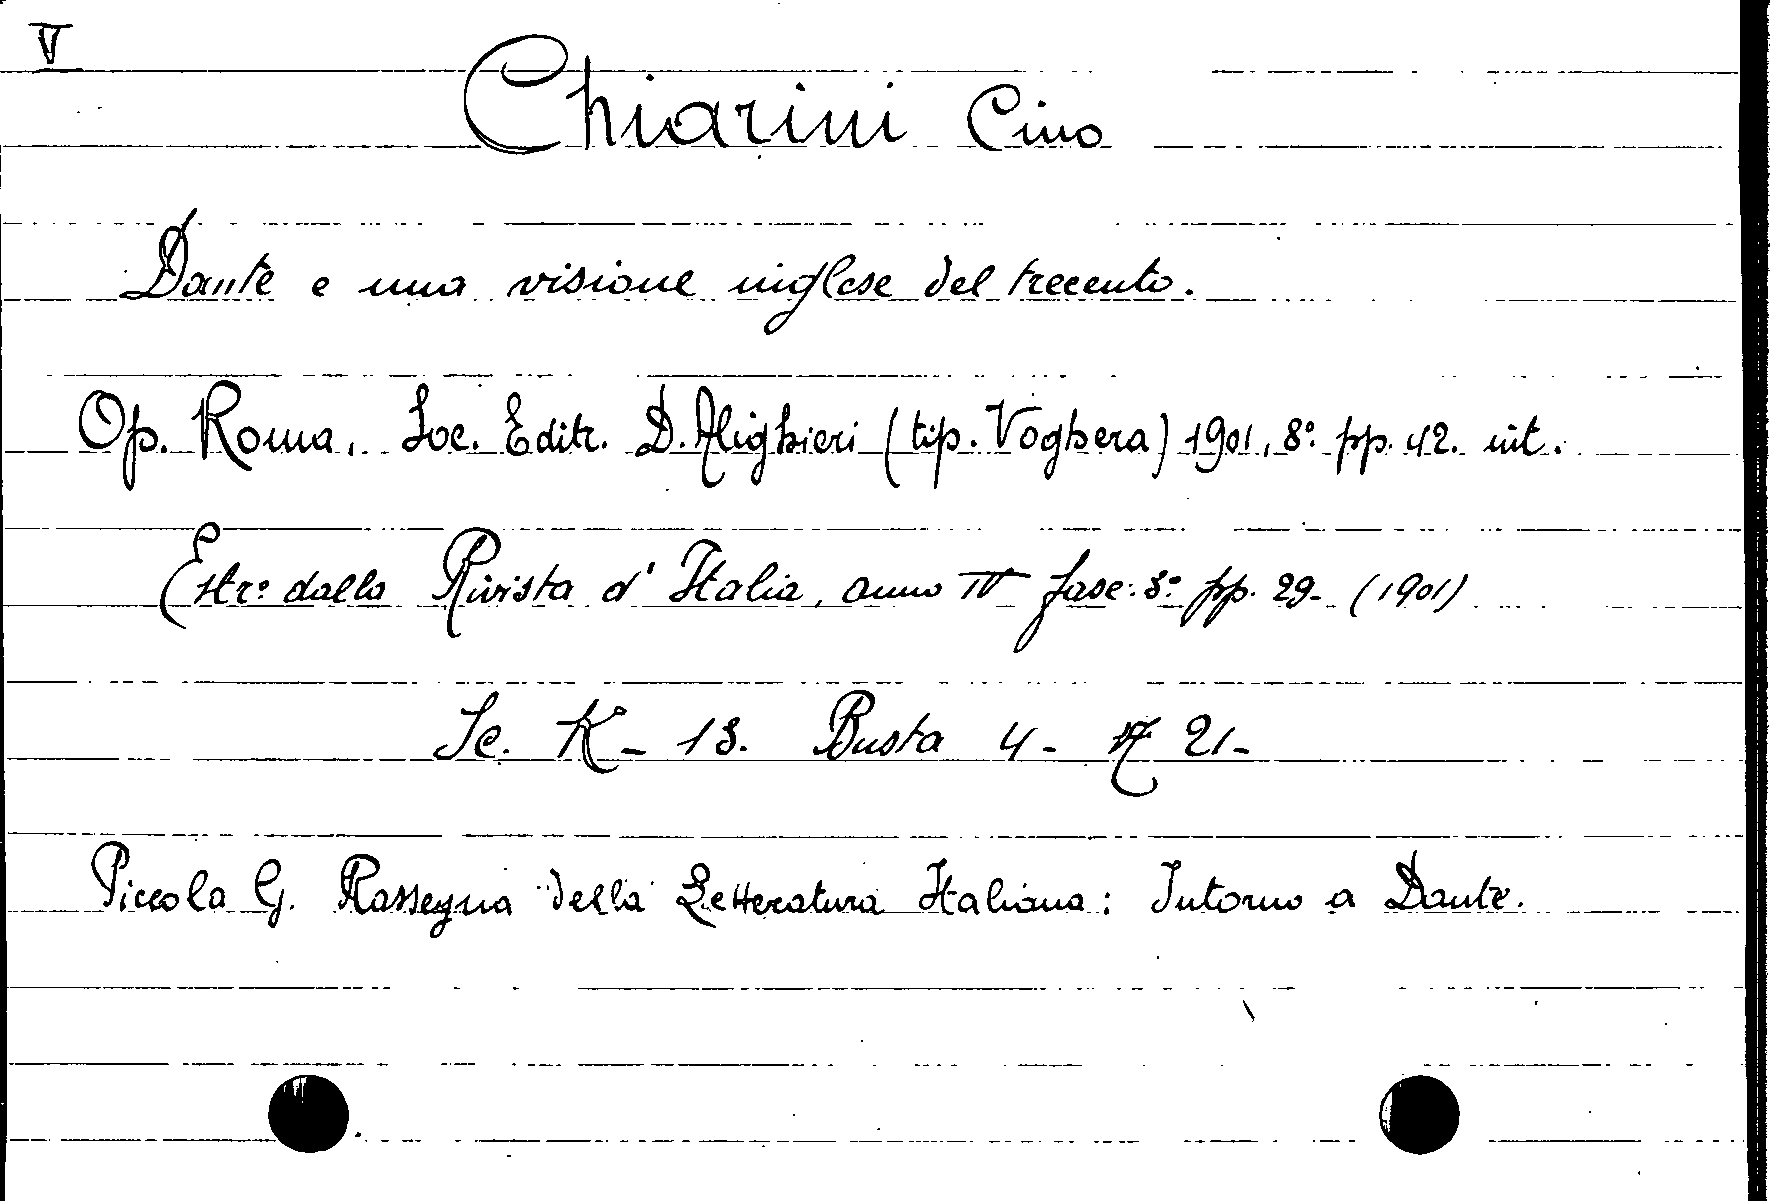 V
Chiarini Cino
Dante e una visione inglese del trecento.
Op. Roma. Soc. Editr. D. Alighieri (tip. Voghera) 1901, 8º pp. 42. int.
(Estrº dalla Rivista d'Italia, anno IV fasc. 3º pp. 29- (1901)
Sc. K- 13. Busta 4- N 21-
Piccola G. Rassegna della Letteratura Italiana: Intorno a Dante.